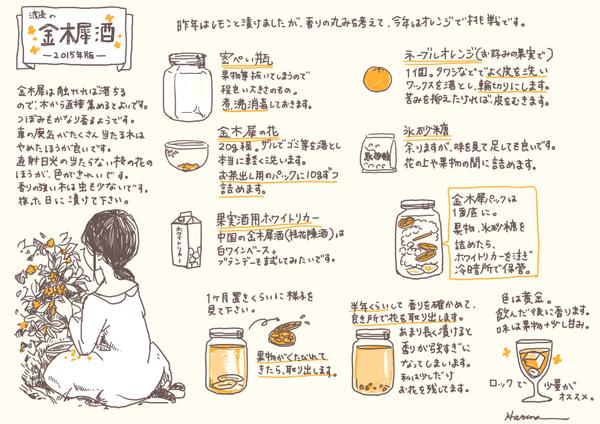 酒造の
金木犀酒
―2015年版―
昨年はレモンと漬けましたが、香りの丸みを考えて、今年はオレンジで挑戦です。
金木犀は触れれば落ちる
ので、木から直接集めるとよいです。
つぼみもかなり香るようです。
車の廃気がたくさん当たる木は
やめたほうが良いです。
直射日光の当たらない枝の花の
ほうが、色がきれいです。
香りの強い木は虫も少ないです。
採った日に漬けて下さい。
密ぺい瓶
果物等抜いてしまうので
程良い大きさのもの。
煮沸消毒しておきます。
金木犀の花
20g程。ザルでゴミ等を落とし
本当に軽く洗います。
お茶出し用のパックに10gずつ
詰めます。
ホワイトリカー
果実酒用ホワイトリカー
中国の金木犀酒(桂花陳酒)は
白ワインベース。
ブランデーも試してみたいです。
ネーブルオレンジ(お好みの果実で)
1個。タワシなどでよく皮を洗い
ワックスを落とし、輪切りにします。
苦みを抑えたければ、皮をむきます。
氷砂糖
氷砂糖
余りますが、味を見て足しても良いです。
花の上や果物の間に詰めます。
金木犀パックは
1番底に。
果物、氷砂糖を
詰めたら、
ホワイトリカーを注ぎ
冷暗所で保管。
1ヶ月置きくらいに様子を
見て下さい。
果物がくたびれて
きたら、取り出します。
半年くらいして香りを確かめて、
良き所で花を取り出します。
あまり長く漬けると
香りが強すぎに
なってしまいます。
私は少しだけ
お花を残してます。
色は黄金。
飲んだ後に香ります。
味は果物+少し甘み。
ロックで
少量が
オススメ。
Haruna